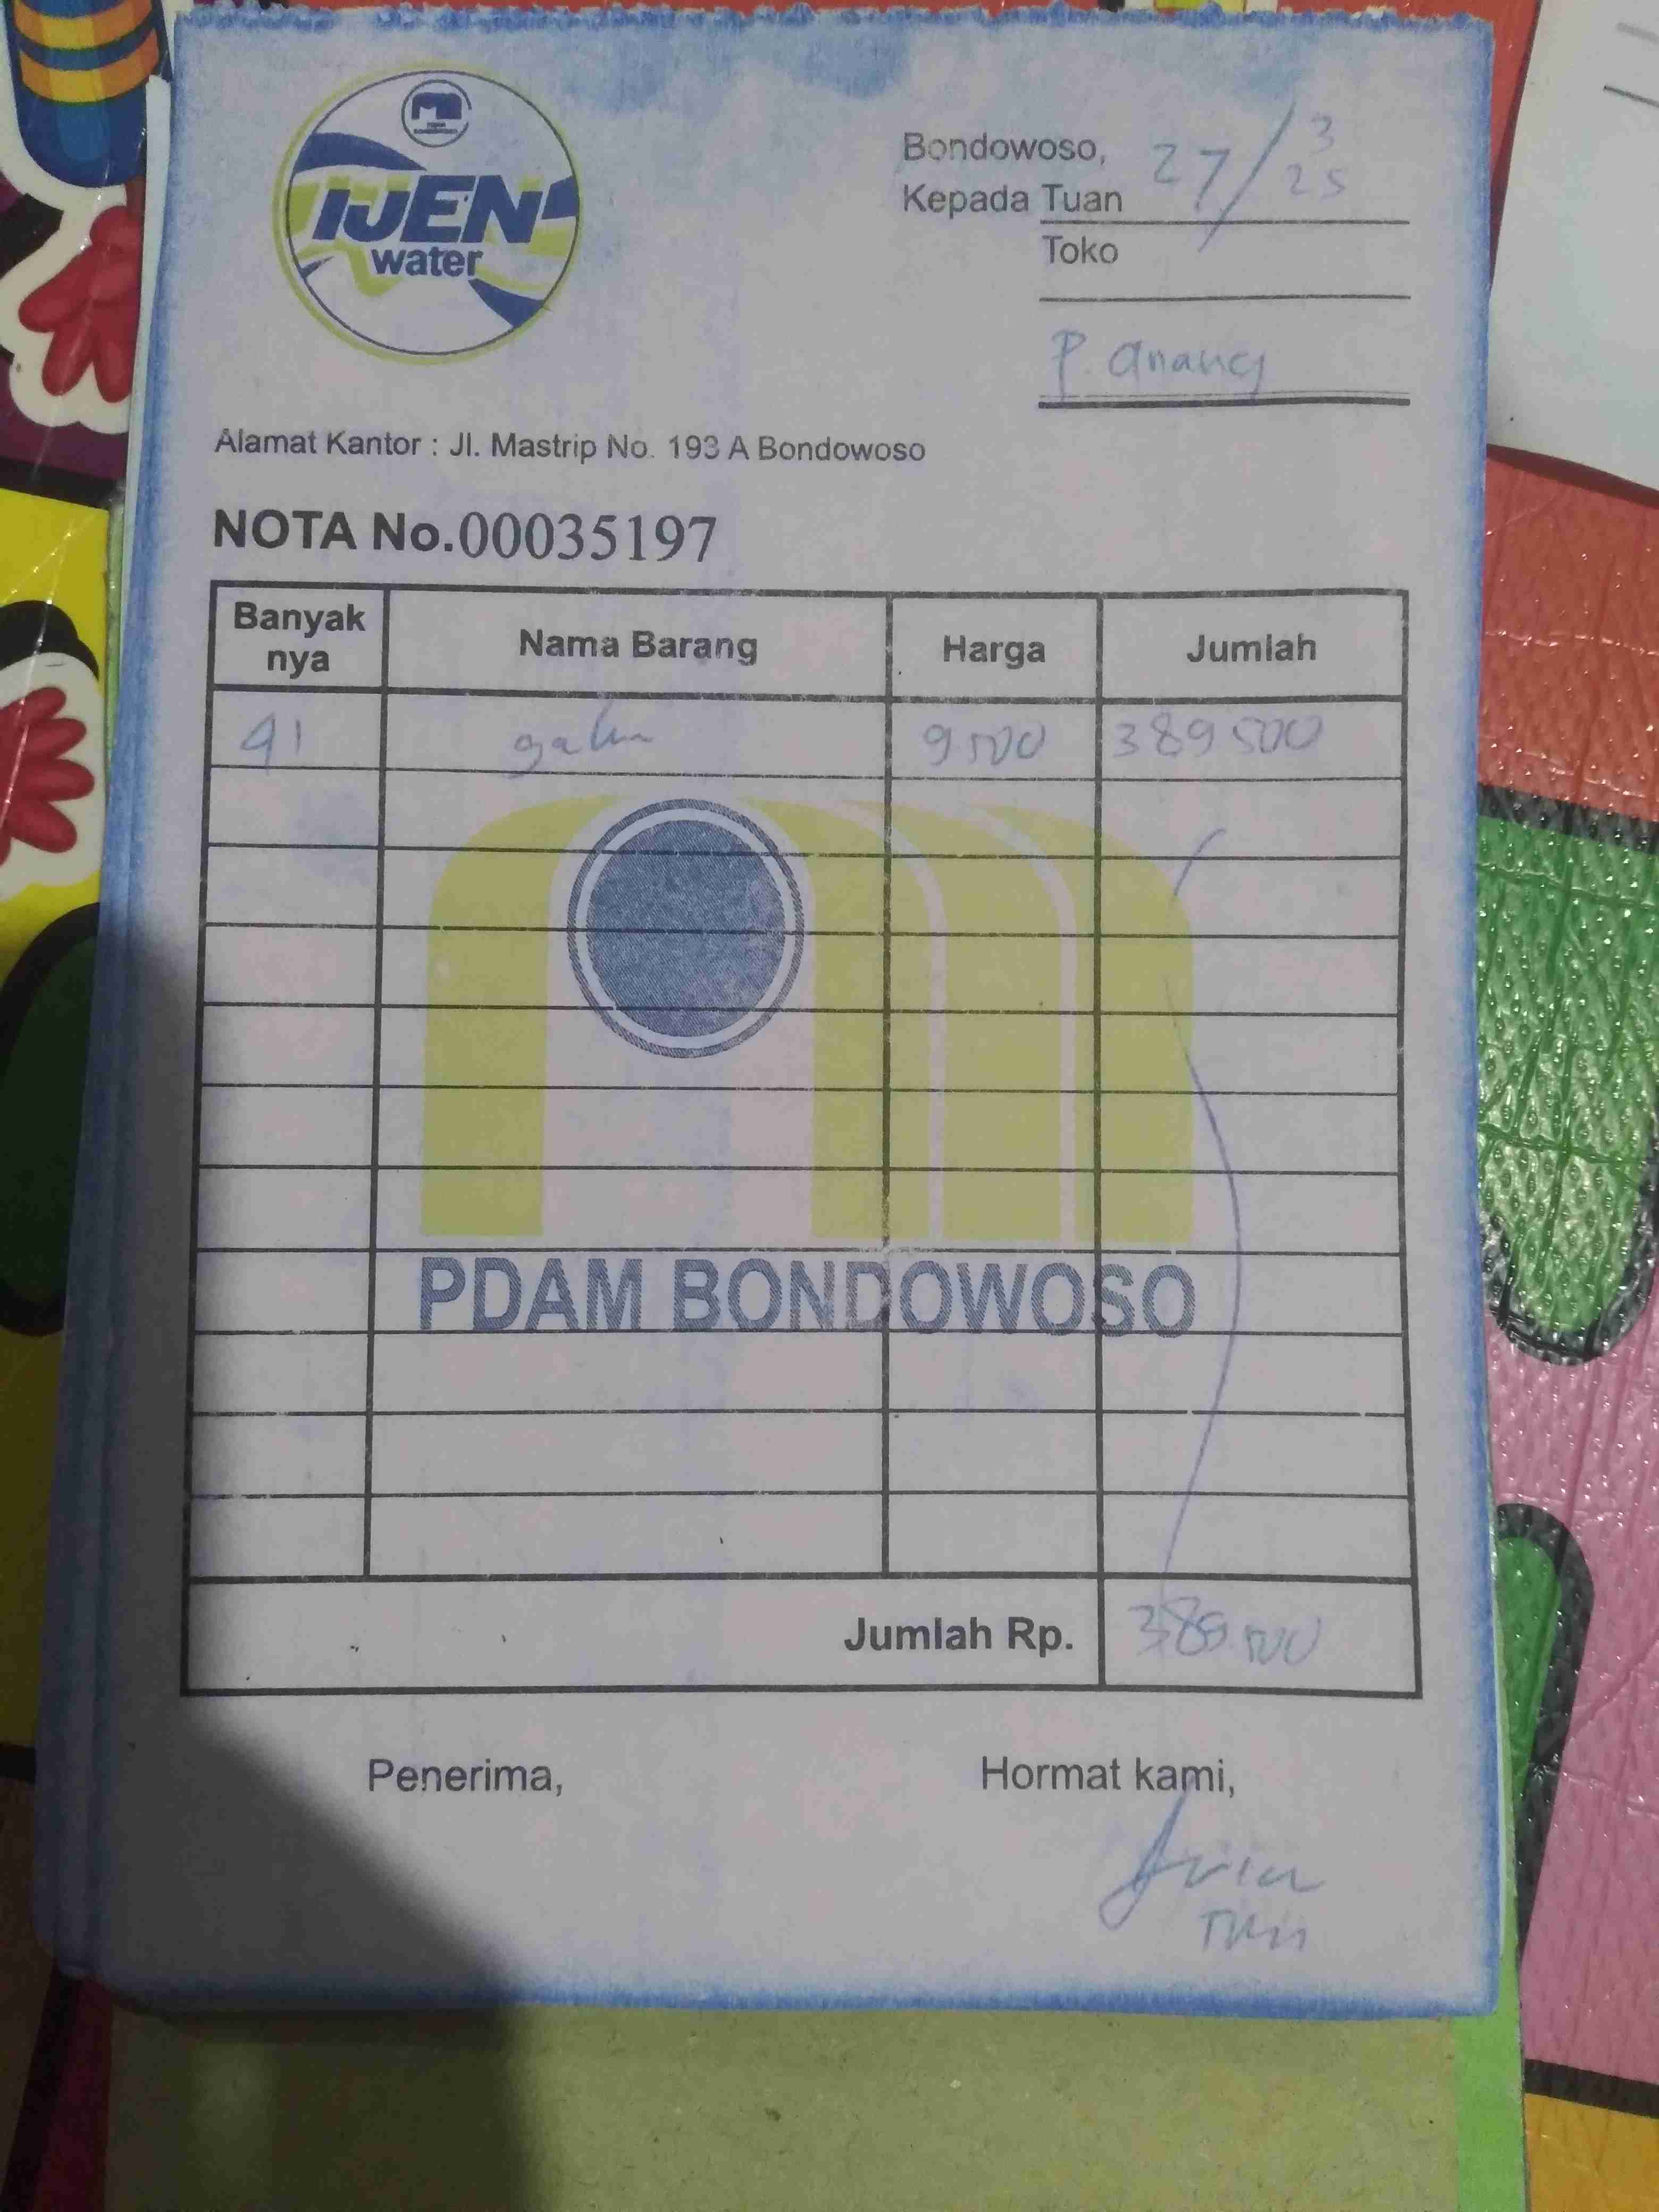 IJEN
water
Bondowoso, 27/3 25
Kepada Tuan
Toko
P. anang
Alamat Kantor : Jl. Mastrip No. 193 A Bondowoso
NOTA No.00035197
Banyak nya Nama Barang Harga Jumlah
41 galon 9500 389500
PDAM BONDOWOSO
Jumlah Rp. 389.500
Penerima, Hormat kami,